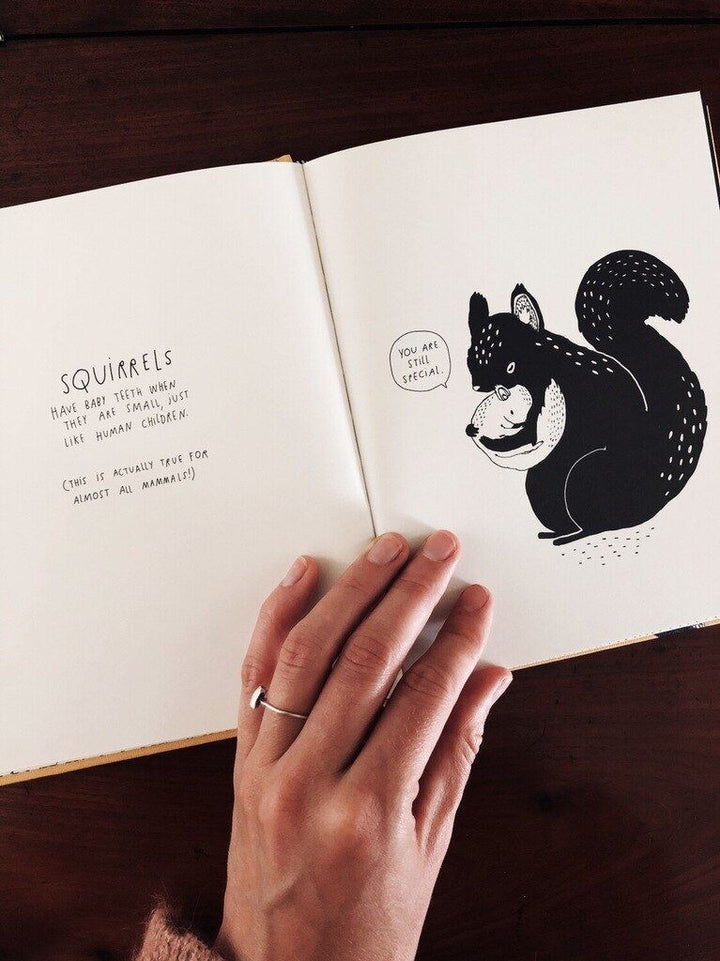 SQUIRRELS
HAVE BABY TEETH WHEN
THEY ARE SMALL, JUST
LIKE HUMAN CHILDREN.
(THIS IS ACTUALLY TRUE FOR
ALMOST ALL MAMMALS!)
YOU ARE
STILL
SPECIAL.